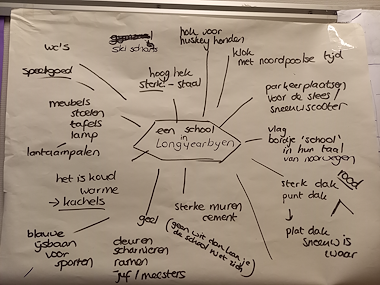 wc's
ski schans
hok voor
huskey honden
klok
met noordpoolse tijd
speelgoed
hoog hek
sterk - staal
parkeerplaatsen
voor de slees /
sneeuwscooter
meubels
stoelen
tafels
lamp
lantaarnpalen
een school
in
Longyearbyen
vlag
bordje 'school'
in hun taal
van noorwegen
rood
het is koud
warme
→ kachels
sterke muren
cement
(geen wit dan kan je
de school niet zien)
geel
sterk dak
punt dak
↓
plat dak
sneeuw is
zwaar
blauwe
ijsbaan
voor
sporten
deuren
scharnieren
ramen
juf / meesters